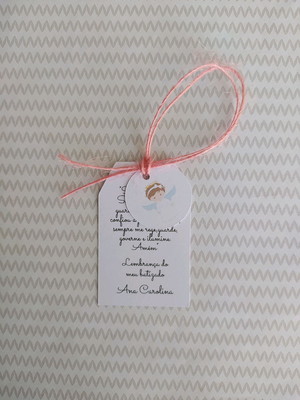 confiou a
sempre me rege, guarde,
governe e ilumina
Amém
Lembrança do
meu batizado
Ana Carolina